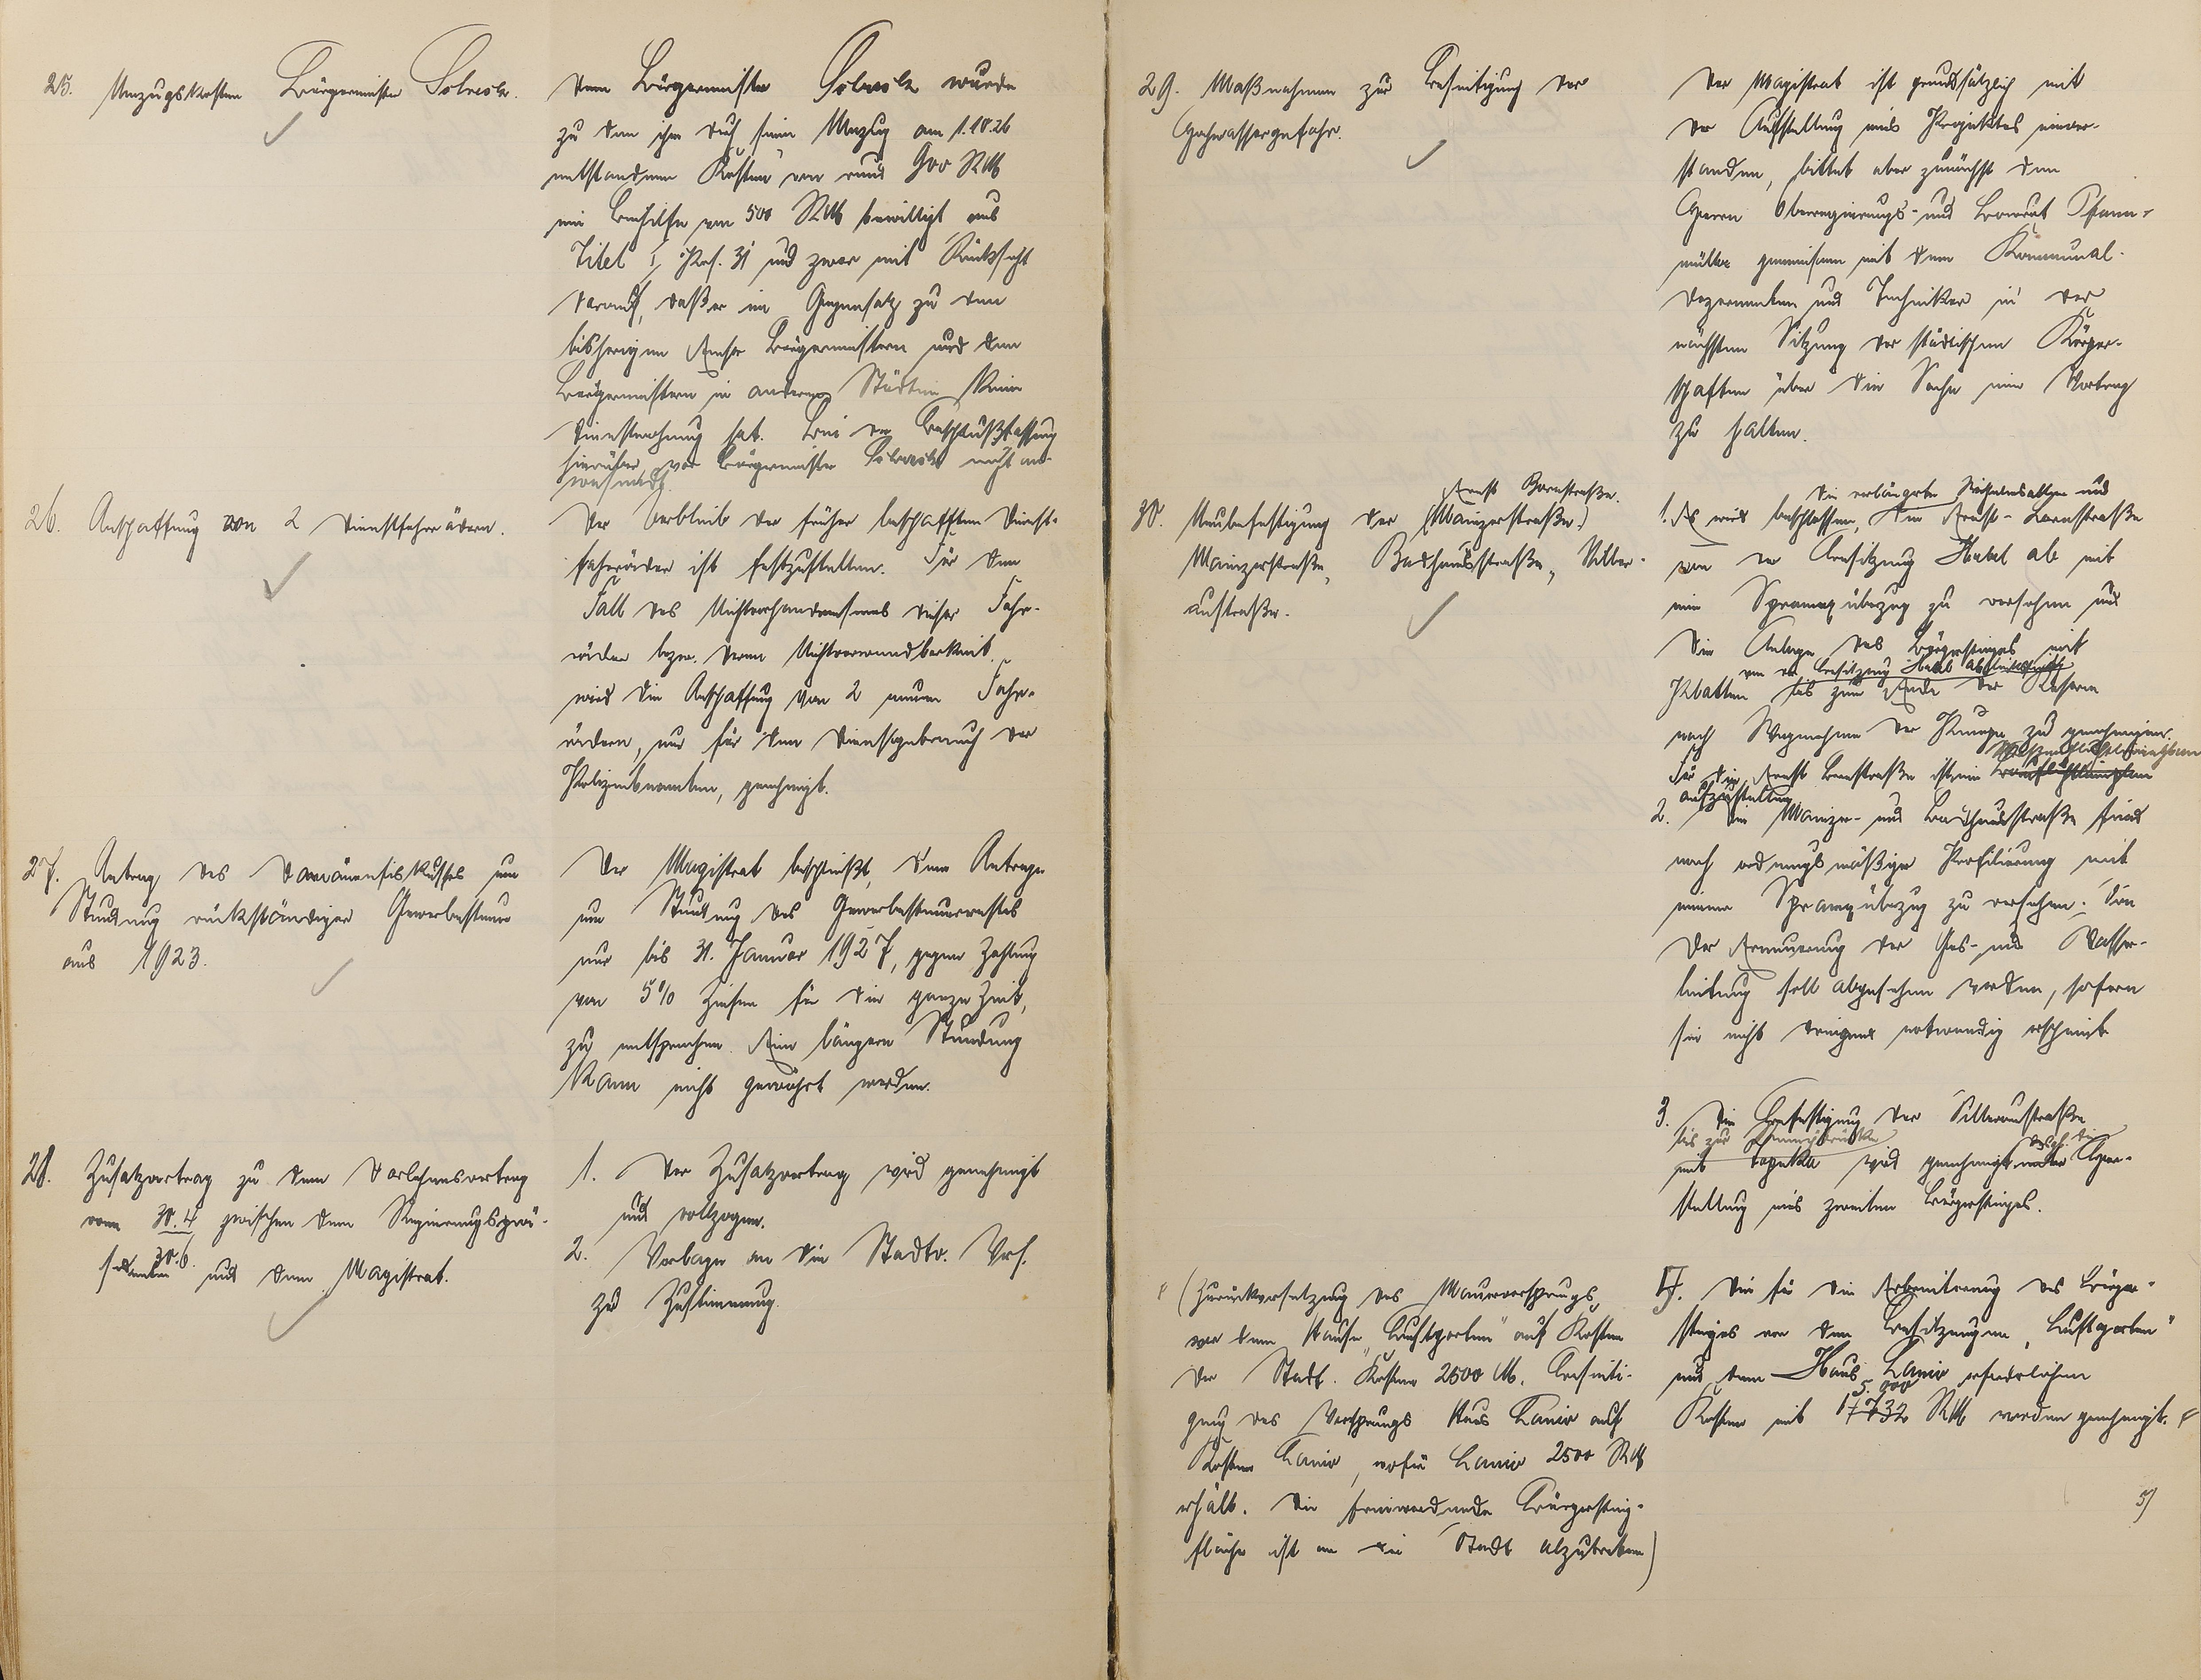 25. Umzugskosten Bürgermeister
Dem Bürgermeister wurde
zu den ihm durch seinen Umzug am 1.10.26
entstandenen Kosten von rund 900 RM
eine Beihilfe von 500 RM bewilligt aus
Titel I, Pos. 31 und zwar mit Rücksicht
darauf, daß er im Gegensatz zu den
bisherigen Emser Bürgermeistern und den
Bürgermeistern in anderen Städten keine
Dienstwohnung hat. Bei der Beschlußfassung
hierüber war Bürgermeister nicht an-
wesend.
26. Anschaffung von 2 Dienstfahrrädern.
Der Verbleib der früher beschafften Dienst-
fahrräder ist festzustellen. Für den
Fall des Nichtvorhandenseins dieser Fahr-
räder bezw. deren Nichtverwendbarkeit
wird die Anschaffung von 2 neuen Fahr-
rädern, nur für den Dienstgebrauch der
Polizeibeamten, genehmigt.
27. Antrag des Domänenfiskusses um
Stundung rückständiger Gewerbesteuer
aus 1923.
Der Magistrat beschließt, dem Antrage
um Stundung des Gewerbesteuerrestes
nur bis 31. Januar 1927, gegen Zahlung
von 5% Zinsen für die ganze Zeit,
zu entsprechen. Eine längere Stundung
kann nicht gewährt werden.
28. Zusatzvertrag zu dem Darlehnsvertrag
vom 30.4. zwischen dem Regierungsprä-
30.6.
sidenten und dem Magistrat.
1. Der Zusatzvertrag wird genehmigt
und vollzogen.
2. Vorlage an die Stadtv. Vers.
zur Zustimmung.
29. Maßnahmen zur Beseitigung der
Hochwassergefahr.
Der Magistrat ist grundsätzlich mit
der Aufstellung eines Projektes einver-
standen, bittet aber zunächst den
Herrn Oberregierungs- und Baurat Pfann-
müller gemeinsam mit dem Kommunal-
dezernenten und Techniker in der
nächsten Sitzung der städtischen Körper-
schaften über die Sache einen Vortrag
zu halten.
Ernst Bornstraße.
30. Neubefestigung der (Mainzerstraße.)
Mainzerstraße, Badhausstraße, Silber-
austraße.
die verlängerte Wilhelmsallee und
1. Es wird beschlossen, die Ernst-Bornstraße
von der Besitzung Habel ab mit
einem Spramexüberzug zu versehen und
die Anlage des Bürgersteiges mit
von der Besitzung Habel ab
Platten bis zum Ende der
nach Wegnahme der zu genehmigen.
Für die Ernst Bornstraße ist ein
aufzustellen.
2. Die Mainzer- und Badhausstraße sind
nach ordnungsmäßiger Profilierung mit
einem Spramexüberzug zu versehen. Von
der Erneuerung der Gas- und Wasser-
leitung soll abgesehen werden, sofern
sie nicht dringend notwendig erscheint
3. Die Befestigung der Silberaustraße
bis zur
mit wird genehmigt Her-
stellung eines zweiten Bürgersteiges.
(Zurückversetzung des Mauervorsprungs
vor dem Hause "Lustgarten" auf Kosten
der Stadt. Kosten 2500 M. Beseiti-
gung des Vorsprungs Haus Lanio auf
Kosten Lanio, wofür Lanio 2500 RM
erhält. Die freiwerdende Bürgersteig-
fläche ist an die Stadt abzutreten)
4. Die für die Erbreiterung des Bürger-
steiges vor den Besitzungen "Lustgarten"
und dem Haus Lanio erforderlichen
5.000
Kosten mit 17732 RM werden genehmigt.